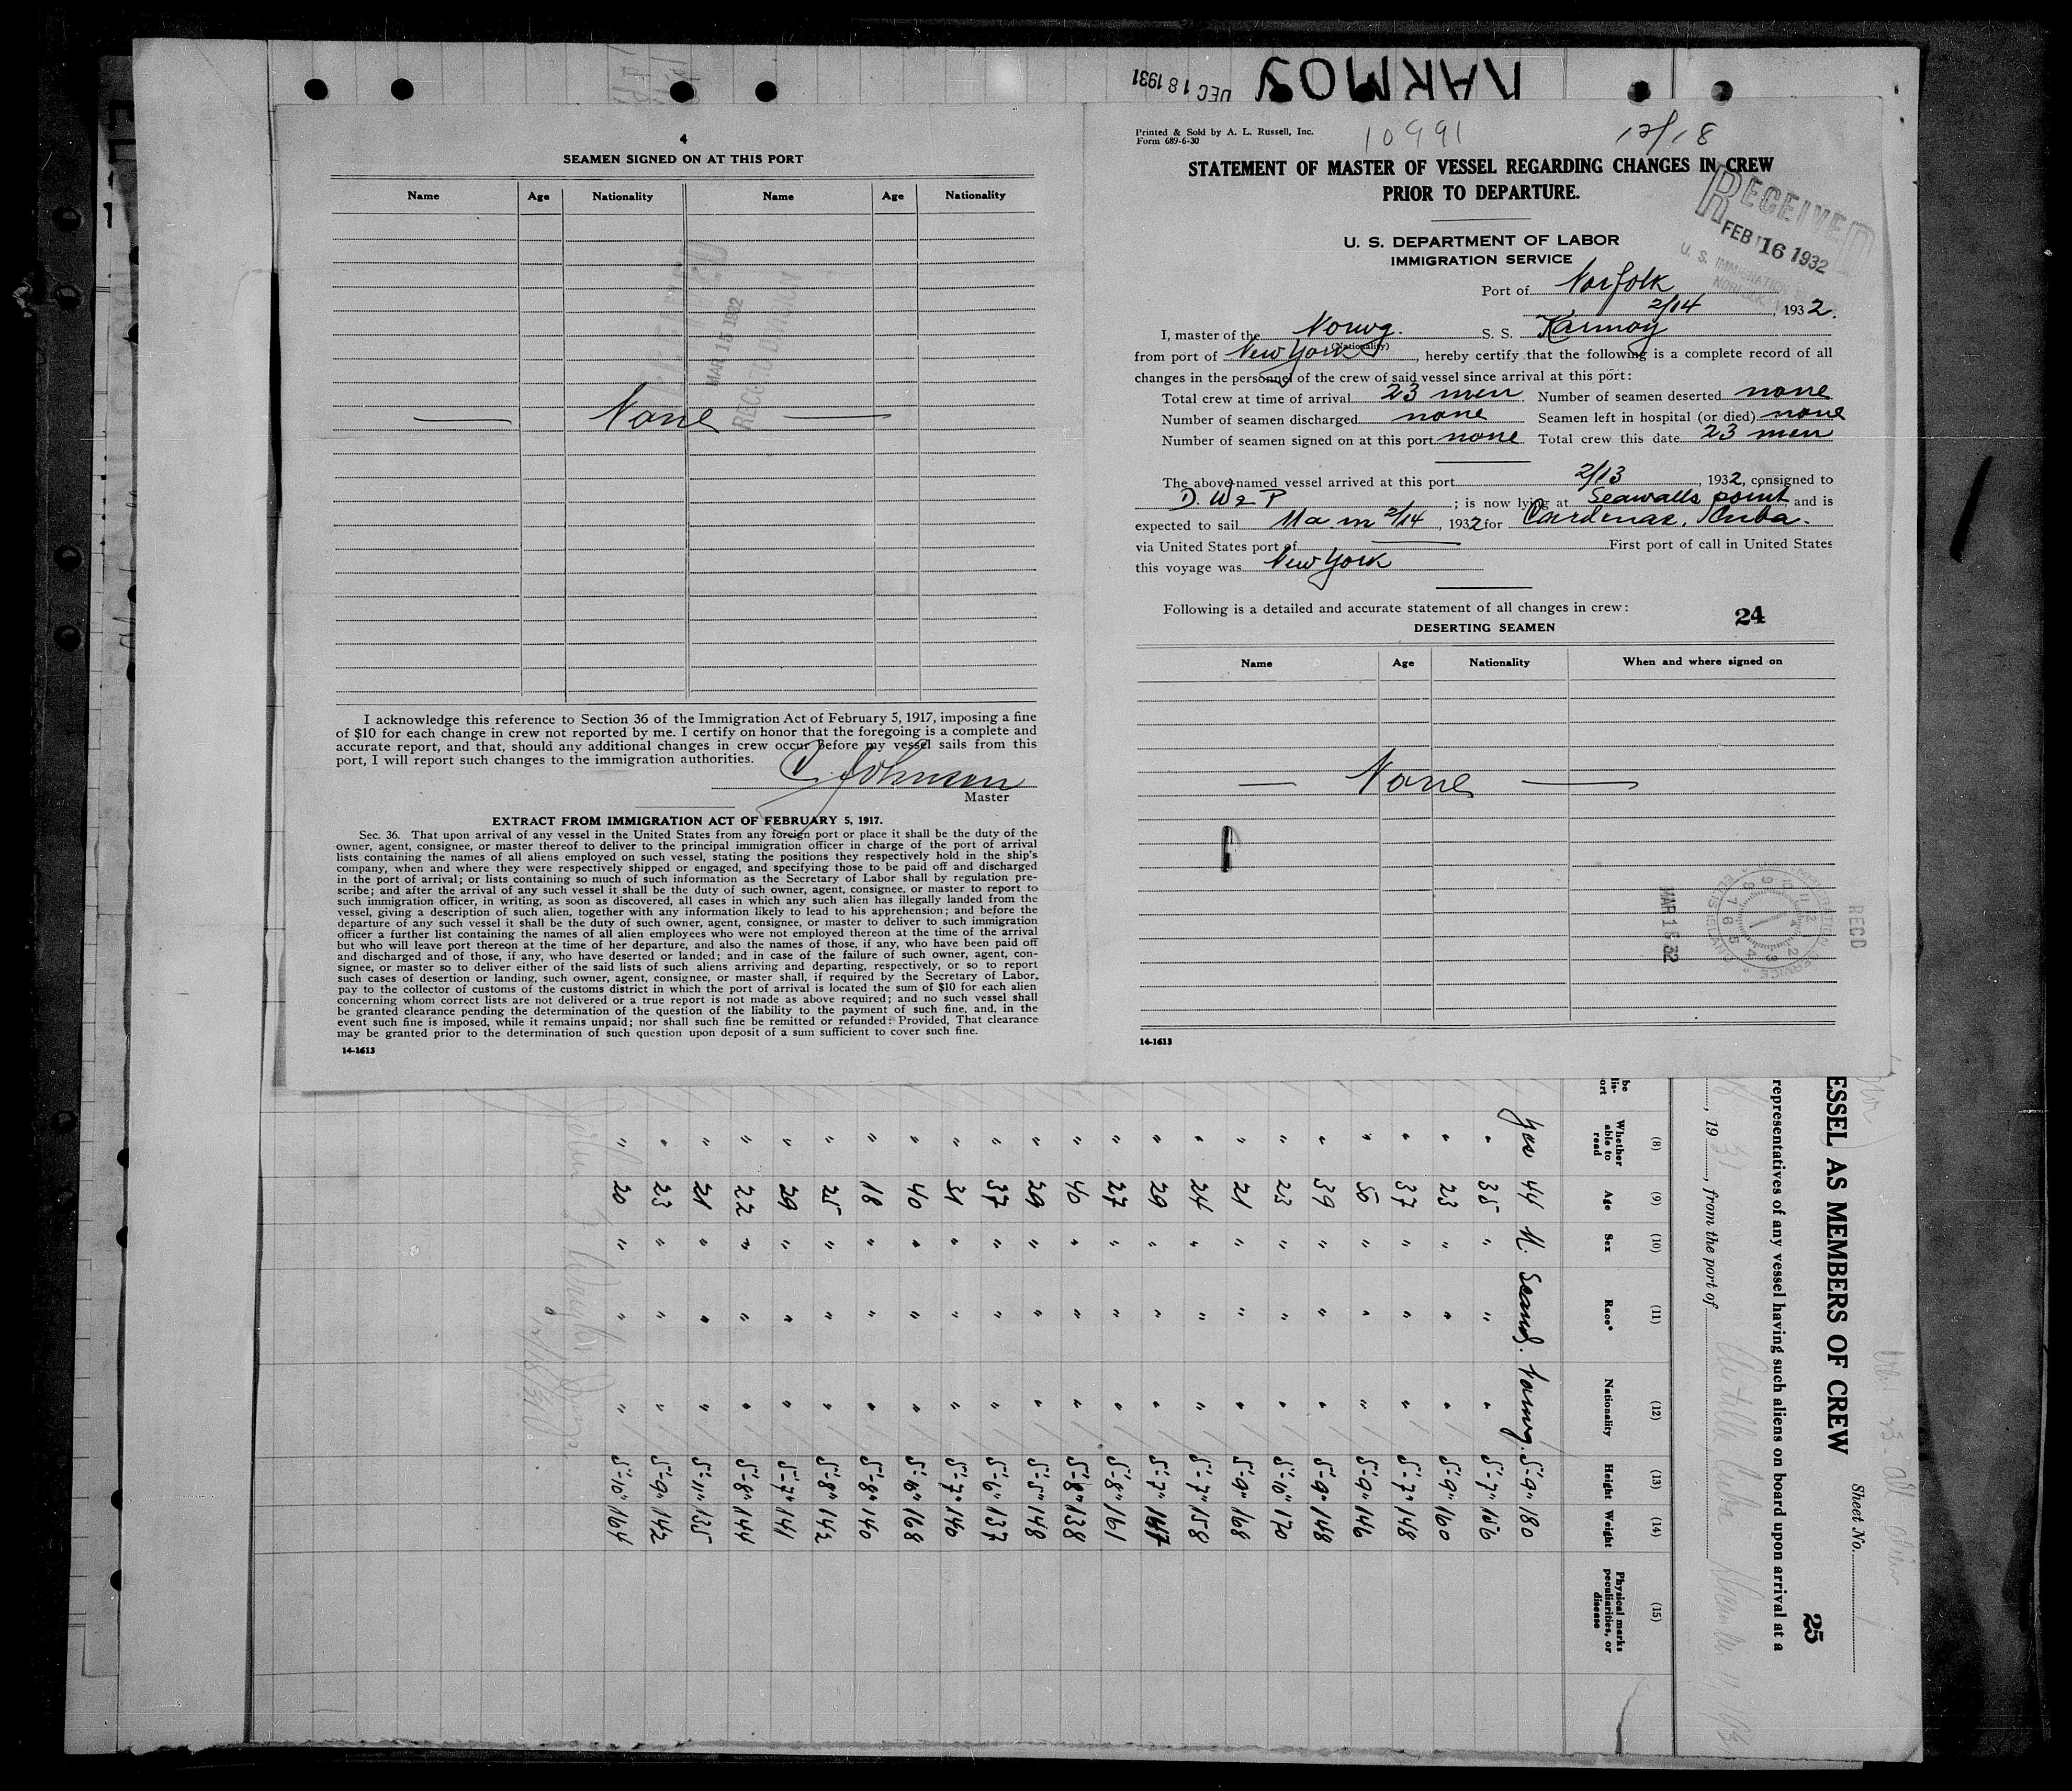 KARMOY
DEC 18 1931
4
SEAMEN SIGNED ON AT THIS PORT
Name Age Nationality Name Age Nationality
MAR 15 1932
RECORD DIVISION
None
I acknowledge this reference to Section 36 of the Immigration Act of February 5, 1917, imposing a fine
of $10 for each change in crew not reported by me. I certify on honor that the foregoing is a complete and
accurate report, and that, should any additional changes in crew occur before my vessel sails from this
port, I will report such changes to the immigration authorities.
Johnson
Master
EXTRACT FROM IMMIGRATION ACT OF FEBRUARY 5, 1917.
Sec. 36. That upon arrival of any vessel in the United States from any foreign port or place it shall be the duty of the
owner, agent, consignee, or master thereof to deliver to the principal immigration officer in charge of the port of arrival
lists containing the names of all aliens employed on such vessel, stating the positions they respectively hold in the ship's
company, when and where they were respectively shipped or engaged, and specifying those to be paid off and discharged
in the port of arrival; or lists containing so much of such information as the Secretary of Labor shall by regulation pre-
scribe; and after the arrival of any such vessel it shall be the duty of such owner, agent, consignee, or master to report to
such immigration officer, in writing, as soon as discovered, all cases in which any such alien has illegally landed from the
vessel, giving a description of such alien, together with any information likely to lead to his apprehension; and before the
departure of any such vessel it shall be the duty of such owner, agent, consignee, or master to deliver to such immigration
officer a further list containing the names of all alien employees who were not employed thereon at the time of the arrival
but who will leave port thereon at the time of her departure, and also the names of those, if any, who have been paid off
and discharged and of those, if any, who have deserted or landed; and in case of the failure of such owner, agent, con-
signee, or master so to deliver either of the said lists of such aliens arriving and departing, respectively, or so to report
such cases of desertion or landing, such owner, agent, consignee, or master shall, if required by the Secretary of Labor,
pay to the collector of customs of the customs district in which the port of arrival is located the sum of $10 for each alien
concerning whom correct lists are not delivered or a true report is not made as above required; and no such vessel shall
be granted clearance pending the determination of the question of the liability to the payment of such fine, and, in the
event such fine is imposed, while it remains unpaid; nor shall such fine be remitted or refunded: Provided, That clearance
may be granted prior to the determination of such question upon deposit of a sum sufficient to cover such fine.
14-1613
Printed & Sold by A. L. Russell, Inc.
Form 689-6-30
10991
12/18
STATEMENT OF MASTER OF VESSEL REGARDING CHANGES IN CREW
PRIOR TO DEPARTURE.
RECEIVED
FEB 16 1932
U. S. IMMIGRATION
NORFOLK
U. S. DEPARTMENT OF LABOR
IMMIGRATION SERVICE
Port of Norfolk
2/14, 1932.
I, master of the Norwg. S. S. Karmoy
(Nationality)
from port of New York, hereby certify that the following is a complete record of all
changes in the personnel of the crew of said vessel since arrival at this port:
Total crew at time of arrival 23 men. Number of seamen deserted none
Number of seamen discharged none Seamen left in hospital (or died) none
Number of seamen signed on at this port none Total crew this date 23 men
The above-named vessel arrived at this port 2/13, 1932, consigned to
D. W & P; is now lying at Seawalls point and is
expected to sail 11 a. m 2/14, 1932 for Cardenas, Cuba.
via United States port of First port of call in United States
this voyage was New York
Following is a detailed and accurate statement of all changes in crew:
24
DESERTING SEAMEN
Name Age Nationality When and where signed on
None
RECD
MAR 15 32
IMMIGRATION SERVICE
ELLIS ISLAND
14-1613
ESSEL AS MEMBERS OF CREW
Sheet No. 1
25
representatives of any vessel having such aliens on board upon arrival at a
, 1931, from the port of Antilla, Cuba
(8) (9) (10) (11) (12) (13) (14) (15)
Whether able to read Age Sex Race* Nationality Height Weight Physical marks peculiarities, or disease
yes 44 M. Scand. Norwg. 5'-9" 180
" 35 " " " 5'-7" 156
" 23 " " " 5'-9" 160
" 37 " " " 5'-7" 148
" 50 " " " 5'-9" 146
" 39 " " " 5'-9" 148
" 23 " " " 5'-10" 170
" 21 " " " 5'-9" 168
" 24 " " " 5'-7" 158
" 29 " " " 5'-7" 147
" 27 " " " 5'-8" 161
" 40 " " " 5'-8" 138
" 29 " " " 5'-5" 148
" 37 " " " 5'-6" 137
" 31 " " " 5'-7" 140
" 40 " " " 5'-10" 168
" 18 " " " 5'-8" 140
" 25 " " " 5'-8" 142
" 29 " " " 5'-7" 141
" 22 " " " 5'-8" 144
" 21 " " " 5'-11" 135
" 23 " " " 5'-9" 142
" 20 " " " 5'-10" 164
12/18/31